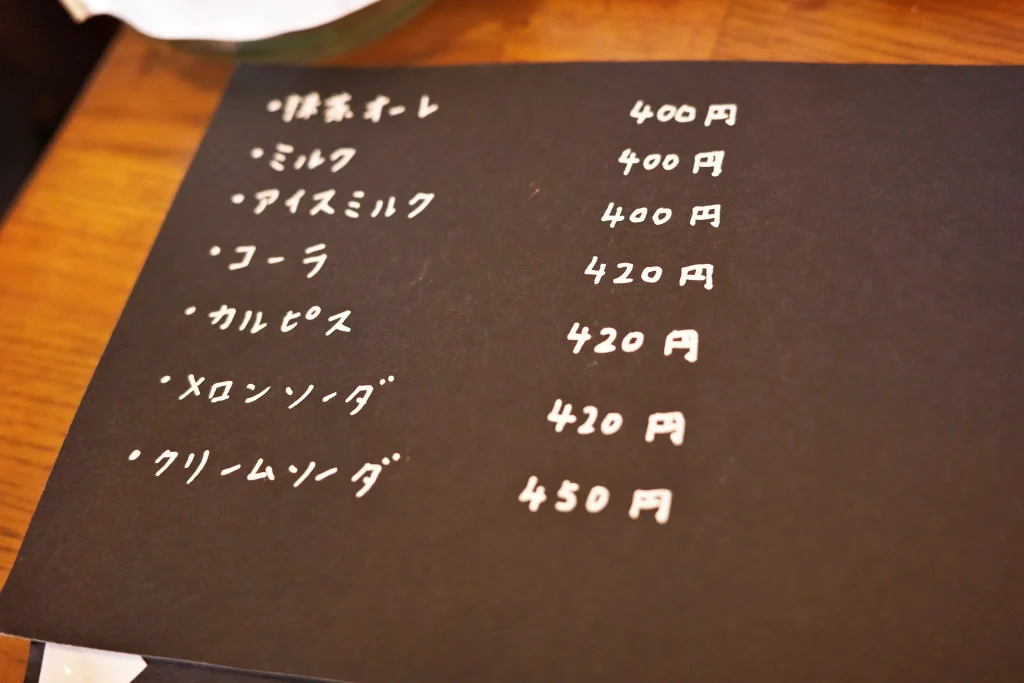 ・抹茶オーレ 400円
・ミルク 400円
・アイスミルク 400円
・コーラ 420円
・カルピス 420円
・メロンソーダ 420円
・クリームソーダ 450円